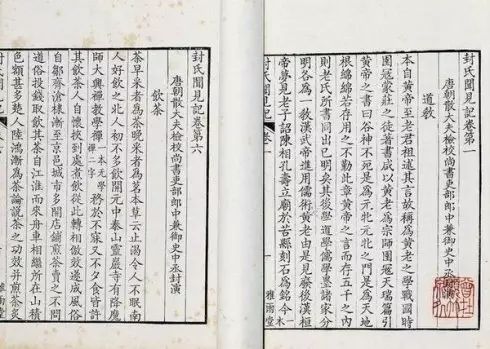 封氏聞見記卷第一
唐朝散大夫檢校尚書吏部郎中兼御史中丞封演
道教
本自黃帝至老君祖述其言故稱為黃老之學戰國時
圄寇莊之徒著書咸以黃老為宗師圄寇天瑞篇引
黃帝之書曰谷神不死是為元牝元牝之門是為天地
根綿綿若存用之不勤此章黃帝之言而存五千之內
則老氏所書同出已明矣其後學道學儒學墨諸家分
明各為一教漢武帝進用儒術黃老由是見廢後漢桓
帝夢見老子詔陳相孔壽立廟於苦縣刻石為銘今木
封氏聞見記
卷一
雅雨堂
封氏聞見記卷第六
唐朝散大夫檢校尚書吏部郎中兼御史中丞封演
飲茶
茶早采者為茶晚采者為茗本草云止渴令人不眠南
人好飲之北人初不多飲開元中泰山靈巖寺有降魔
師大興禪教學禪一本元學禪二字務於不寐又不夕食皆許
其飲茶人自懷挾到處煮飲從此轉相倣效遂成風俗
自鄒齊滄棣漸至京邑城市多開店鋪煎茶賣之不問
道俗投錢取飲其茶自江淮而來舟車相繼所在山積
色額甚多楚人陸鴻漸為茶論說茶之功效并煎茶炙
封氏聞見記
雅雨堂